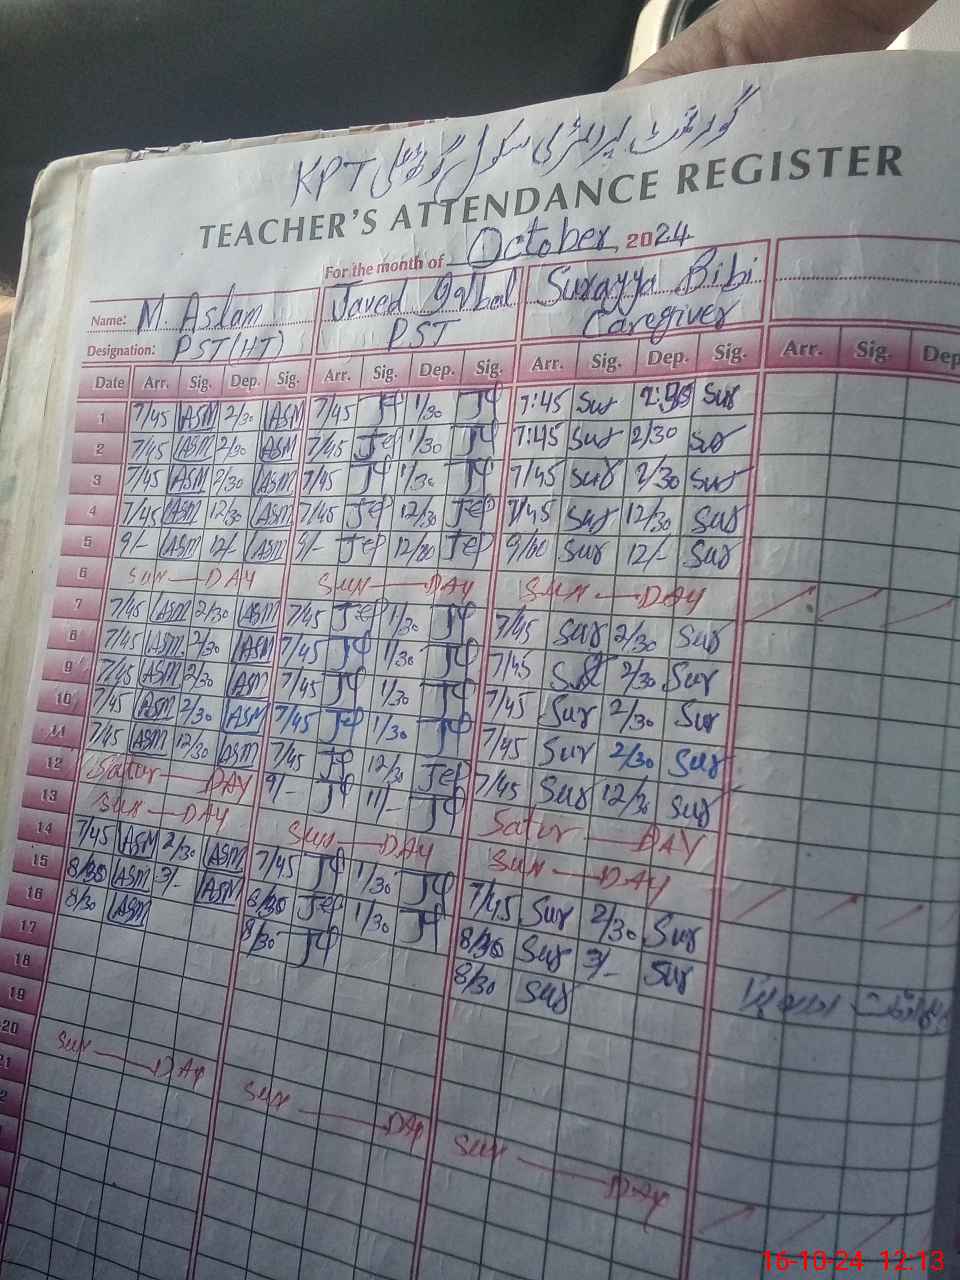 گورنمنٹ پرائمری سکول گوٹھ KPT
TEACHER'S ATTENDANCE REGISTER
For the month of October, 2024
Name: M. Aslam Javed Iqbal Surayya Bibi
Designation: PST (HT) PST Caregiver
Date Arr. Sig. Dep. Sig. Arr. Sig. Dep. Sig. Arr. Sig. Dep. Sig. Arr. Sig. Dep
1 7/45 ASM 2/30 ASM 7/45 Jf 1/30 Jf 7:45 Sur Sur
2 7/45 ASM 2/30 ASM 7/45 Jef 1/30 Jf 7:45 Sur 2/30 Sur
3 7/45 ASM 2/30 ASM 7/45 Jf 1/30 Jf 7/45 Sur 2/30 Sur
4 7/45 ASM 12/30 ASM 7/45 Jef 12/30 Jef 7/45 Sur 12/30 Sur
5 9/- ASM 12/- ASM 9/- Jef 12/00 Jef 9/00 Sur 12/- Sur
6 Sun DAY Sun DAY Sun DAY
7 7/45 ASM 2/30 ASM 7/45 Jef 1/30 Jf 7/45 Sur 2/30 Sur
8 7/45 ASM 2/30 ASM 7/45 Jf 1/30 Jf 7/45 Sur 2/30 Sur
9 7/45 ASM 2/30 ASM 7/45 Jf 1/30 Jf 7/45 Sur 2/30 Sur
10 7/45 ASM 2/30 ASM 7/45 Jef 1/30 Jf 7/45 Sur 2/30 Sur
11 7/45 ASM 12/30 ASM 7/45 Jf 12/30 Jef 7/45 Sur 12/30 Sur
12 Satur DAY 9/- Jf 11/- Jf Satur DAY
13 Sun DAY Sun DAY Sun DAY
14 7/45 ASM 2/30 ASM 7/45 Jf 1/30 Jf 7/45 Sur 2/30 Sur
15 8/30 ASM 3/- ASM 8/30 Jef 1/30 Jf 8/30 Sur 3/- Sur
16 8/30 ASM 8/30 Jf 8/30 Sur
17
18
19
20 Sun DAY Sun DAY Sun DAY
21
16-10-24 12:13